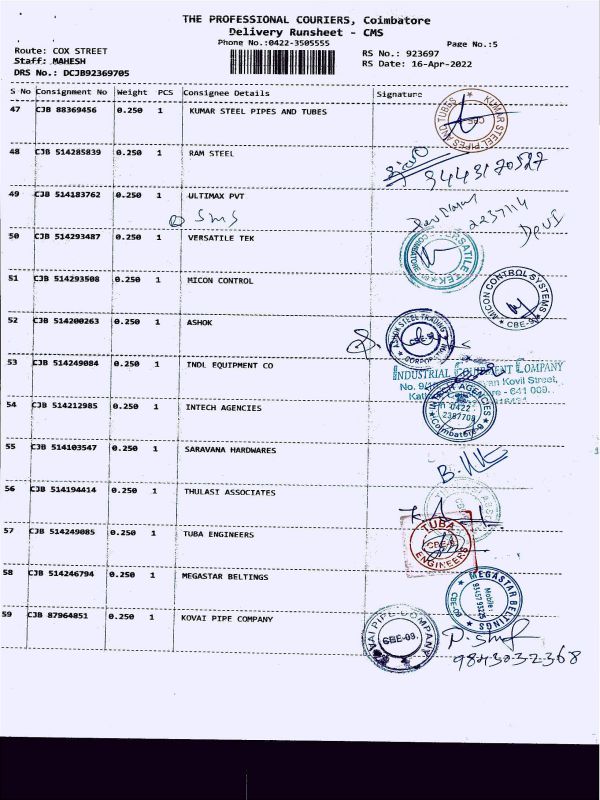 THE PROFESSIONAL COURIERS, Coimbatore
Delivery Runsheet - CMS
Phone No.:0422-3505555
Page No.:5
Route: COX STREET
RS No.: 923697
Staff: MAHESH
RS Date: 16-Apr-2022
DRS No.: DCJB92369705
S No Consignment No Weight PCS Consignee Details Signature
47 CJB 88369456 0.250 1 KUMAR STEEL PIPES AND TUBES
KUMAR STEEL PIPES AND TUBES
CBE
48 CJB 514285839 0.250 1 RAM STEEL
9443170527
49 CJB 514183762 0.250 1 ULTIMAX PVT
SMS
2237114
50 CJB 514293487 0.250 1 VERSATILE TEK
51 CJB 514293508 0.250 1 MICON CONTROL
MICON CONTROL SYSTEMS
CBE-9
52 CJB 514200263 0.250 1 ASHOK
STEEL TRADING CORPORATION
53 CJB 514249084 0.250 1 TNDL EQUIPMENT CO
INDUSTRIAL EQUIPMENT COMPANY
Kovil Street,
- 641 009.
54 CJB 514212985 0.250 1 INTECH AGENCIES
INTECH AGENCIES
0422
2387708
Coimbatore-9
55 CJB 514103547 0.250 1 SARAVANA HARDWARES
56 CJB 514194414 0.250 1 THULASI ASSOCIATES
57 CJB 514249085 0.250 1 TUBA ENGINEERS
TUBA
CBE-9
ENGINEERS
58 CJB 514246794 0.250 1 MEGASTAR BELTINGS
MEGASTAR BELTINGS
Mobile:
59 CJB 87964851 0.250 1 KOVAI PIPE COMPANY
KOVAI PIPE COMPANY
CBE-09.
9843032368